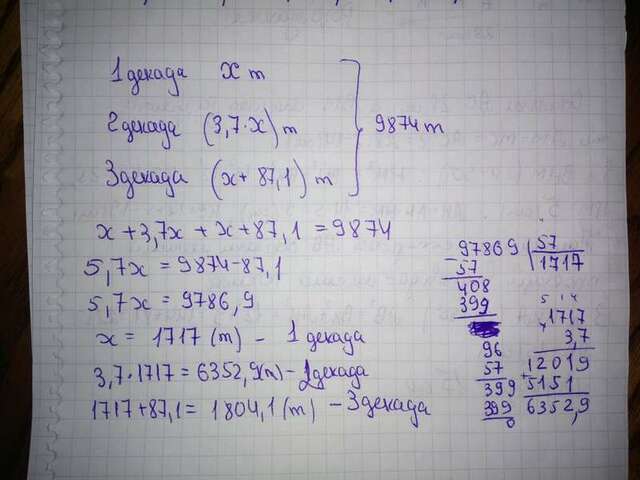 1 декада x т
2 декада (3,7·x) т
9874 т
3 декада (x + 87,1) т
x + 3,7x + x + 87,1 = 9874
5,7x = 9874 - 87,1
5,7x = 9786,9
x = 1717 (т) - 1 декада
3,7·1717 = 6352,9(т) - 2декада
1717 + 87,1 = 1804,1 (т) - 3 декада
97869 | 57
57 1717
408
399
96
57
399
399
0
5 1 4
1717
3,7
12019
5151
6352,9